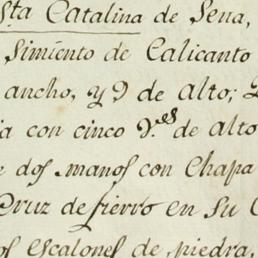 Sta Catalina de Sena,
simiento de Calicanto
ancho, y 9 de alto;
con cinco v.es de alto
dos manos con Chapa
Cruz de fierro en su
escalones de piedra,